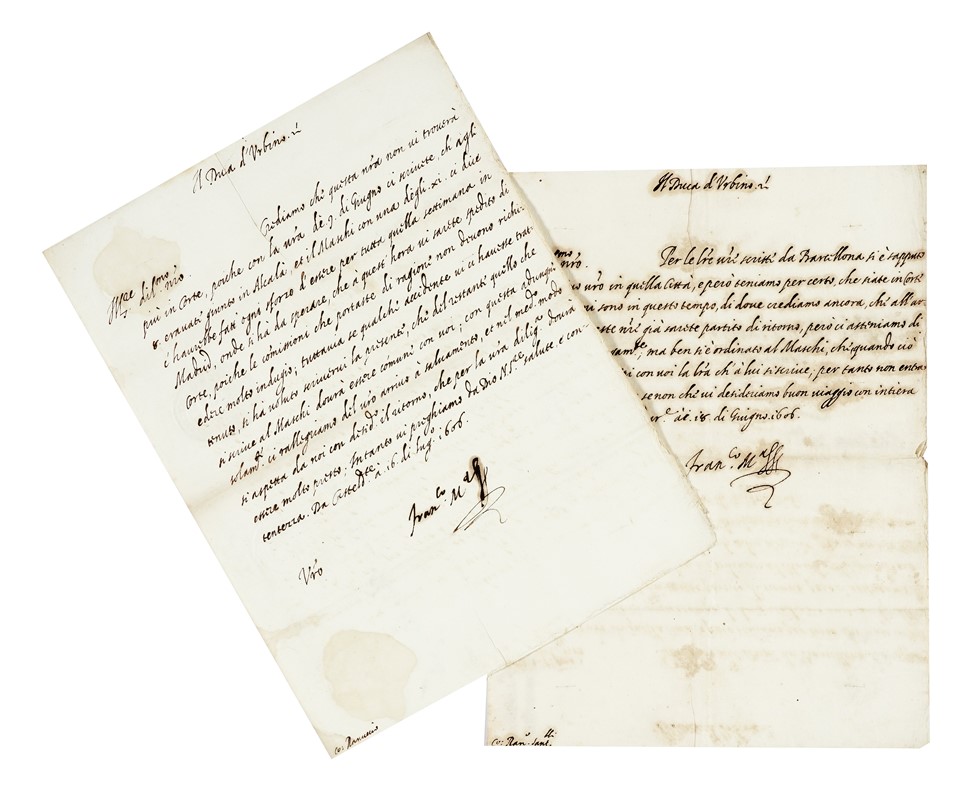 Il Duca d'Urbino. &c.
Mag.re dil.mo nro
Crediamo che questa nra non vi trovarà
più in Corte, poiche con la vra de 9. di Giugno ci scrivete, ch'agli
8. eravate giunto in Alcalà, et il Maschi con una degli .xi. ci dice
c'havereste fati ogni sforzo d'essere per tutta quella settimana in
Madrid, onde si hà da sperare, che à quest'hora vi sarete spedito di
Corte, poiche le comissioni che portaste di ragione non devono richi-
edere molto indugio, tuttavia se qualche accidente vi ci havesse trat-
tenuto, si hà voluto scrivervi la presente, che del restante quello che
si scrive al Maschi dovrà essere comune con voi; con questa adunque
solam.te ci rallegriamo del vro arrivo à salvamento, et nel med.o modo
si aspetta da noi con desid.o il ritorno, che per la vra dilig.a dovrà
essere molto presto. Intanto vi preghiamo da Dio N.S. salute, e con-
tentezza. Da Casteldte à 16. di lug.o 1606.
Fran.co M.a
Vro
Co: Ranuccio
Il Duca d'Urbino. &c.
nro.
Per le lre vre scritte da Barcellona si è sapputo
vro in quella Città, e però teniamo per certo, che siate in Corte
vi sono in questo tempo, di dove crediamo ancora, che all'ar-
vre già sarete partito di ritorno, però ci asteniamo di
; ma ben si è ordinato al Maschi, che quando ciò
con voi la lra ch'à lui si scrive; per tanto non entra
se non che vi desideriamo buon viaggio con intiera
18. di Giugno. 1606.
Fran.co M.a
Co: Ran.o Sant.lli